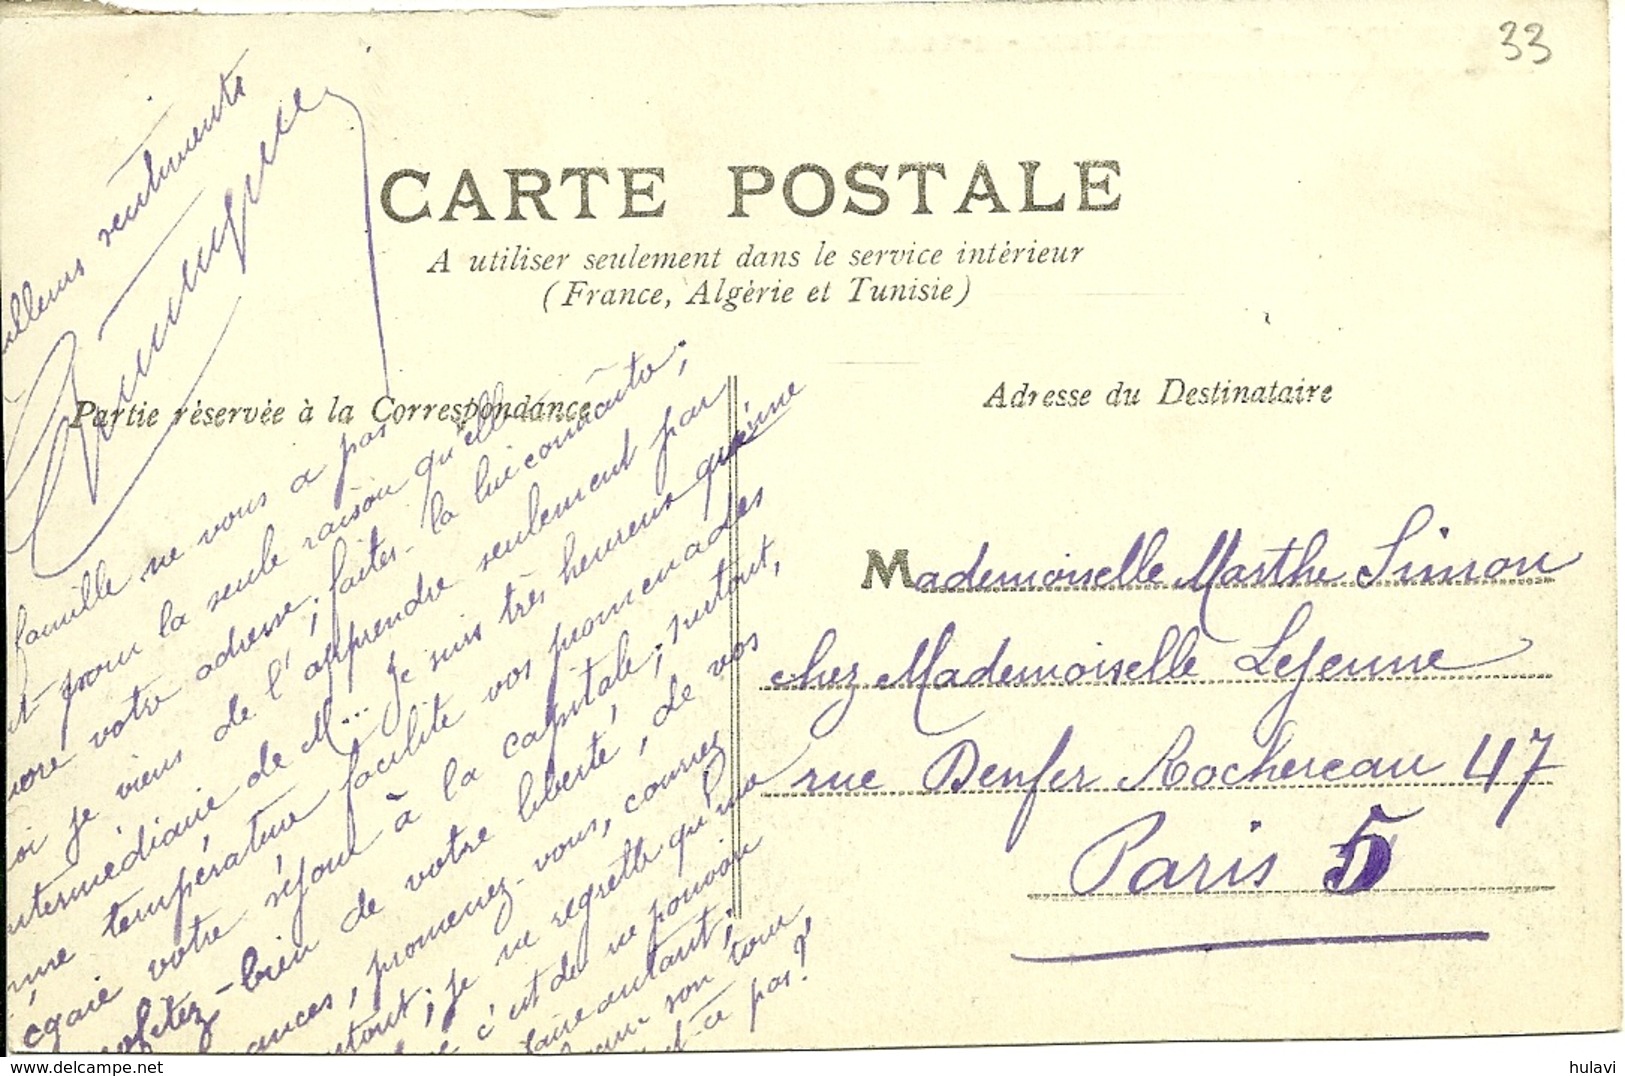 33
CARTE POSTALE
A utiliser seulement dans le service intérieur
(France, Algérie et Tunisie)
Partie réservée à la Correspondance
Adresse du Destinataire
Mademoiselle Marthe Simon
chez Mademoiselle Lejeune
rue Denfer Rochereau 47
Paris 5
famille ne vous a pas
pour la seule raison qu'elle
votre adresse; faites-la lui connaître;
je viens de l'apprendre seulement par
intermédiaire de M... Je suis très heureux qu'une
température facilite vos promenades
égaie votre séjour à la capitale; surtout,
profitez-bien de votre liberté, de vos
vacances, promenez-vous, courez
partout; je ne regrette qu'une
c'est de ne pouvoir
faire autant;
son tour
est-ce pas?
meilleurs sentiments
hulavi